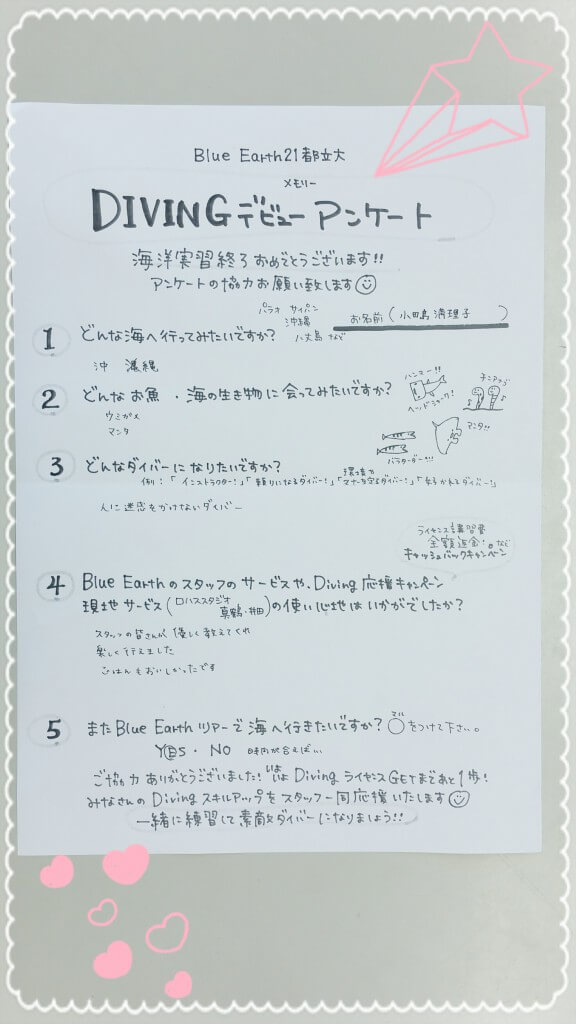 Blue Earth21都立大
メモリー
DIVINGデビューアンケート
海洋実習終了おめでとうございます!!
アンケートの協力お願い致します
お名前(小田島 清理子)
1 どんな海へ行ってみたいですか?
パラオ サイパン
沖縄
八丈島 など
沖縄
2 どんなお魚・海の生き物に会ってみたいですか?
ハンマー!!
ヘッドシャーク!
チンアナゴ
マンタ!!
バラクーダー!!!
ウミガメ
マンタ
3 どんなダイバーになりたいですか?
例:「インストラクター!」「頼りになるダイバー!」「環境やマナーを守るダイバー!」
人に迷惑をかけないダイバー
ライセンス講習費
全額返金!。など
キャッシュバックキャンペーン
4 Blue Earthのスタッフのサービスや、Diving応援キャンペーン
現地サービス(ロハススタジオ
真鶴・井田)の使い心地はいかがでしたか?
スタッフの皆さんが優しく教えてくれ
楽しく行えました
ごはんもおいしかったです
5 またBlue Earthツアーで海へ行きたいですか?○をつけて下さい。
マル
YES・NO 時間が合えばい
ご協力ありがとうございました!いよいよDivingライセンスGETまであと1歩!
みなさんのDivingスキルアップをスタッフ一同応援いたします
一緒に練習して素敵ダイバーになりましょう!!